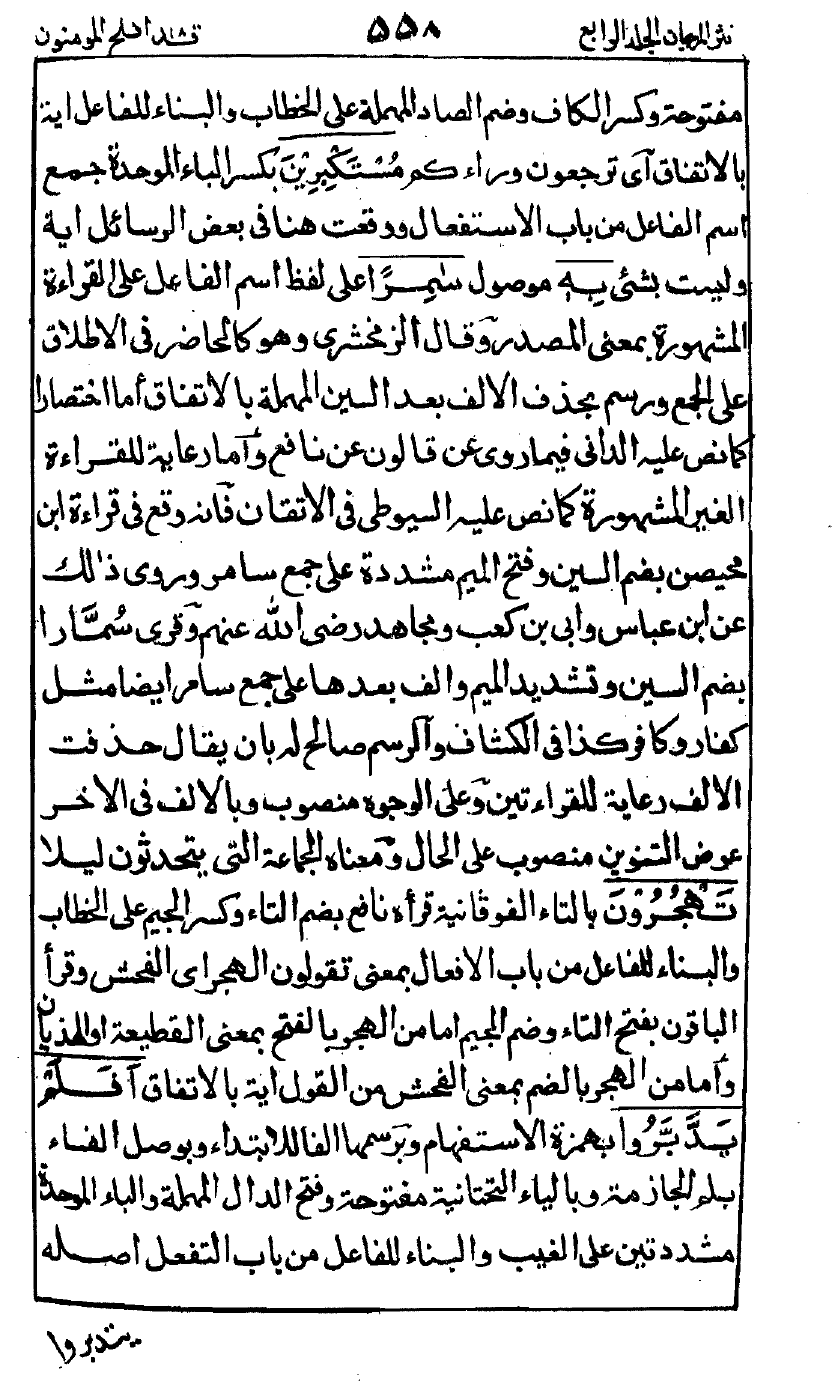 نثر المرجان الجلد الرابع ۵۵۸ قد افلح المومنون
مفتوحة وكسر الكاف وضم الصاد المهملة على الخطاب والبناء للفاعل اية
بالاتفاق آى ترجعون وراء كم مُسْتَكْبِرِيْنَ بكسر الباء الموحدة جمع
اسم الفاعل من باب الاستفعال ووقعت هنا فى بعض الرسائل اية
وليست بشئ بِهٖ موصول سٰمِرًا على لفظ اسم الفاعل على القراءة
المشهورة بمعنى المصدر وقال الزمخشرى وهو كالحاضر فى الاطلاق
على الجمع ورسم بحذف الالف بعد السين المهملة بالاتفاق أما اختصارا
كما نص عليه الدانى فيما روى عن قالون عن نافع وأما رعاية للقراءة
الغير المشهورة كما نص عليه السيوطى فى الاتقان فآنه وقع فى قراءة ابن
محيصن بضم السين وفتح الميم مشددة على جمع سامر وروى ذالك
عن ابن عباس وابى بن كعب ومجاهد رضى الله عنهم وقرى سُمَّارا
بضم السين وتشديد الميم والف بعدها على جمع سامر ايضا مثل
كفار وكافر كذا فى الكشاف وآلرسم صالح له بان يقال حذفت
الالف رعاية للقراءتين وعلى الوجوه منصوب وبالالف فى الاخر
عوض التنوين منصوب على الحال ومعناه الجماعة التى يتحدثون ليلا
تَهْجُرُوْنَ بالتاء الفوقانية قرأه نافع بضم التاء وكسر الجيم على الخطاب
والبناء للفاعل من باب الافعال بمعنى تقولون الهجر اى الفحش وقرأ
الباقون بفتح التاء وضم الجيم اما من الهجر بالفتح بمعنى القطيعة او الهذيان
وأما من الهجر بالضم بمعنى الفحش من القول اية بالاتفاق اَفَلَمْ
يَدَّبَّرُوا بهمزة الاستفهام وبرسمها الفا للابتداء وبوصل الفاء
بلم الجازمة وبالياء التحتانية مفتوحة وفتح الدال المهملة والباء الموحدة
مشددتين على الغيب والبناء للفاعل من باب التفعل اصله
يتدبروا